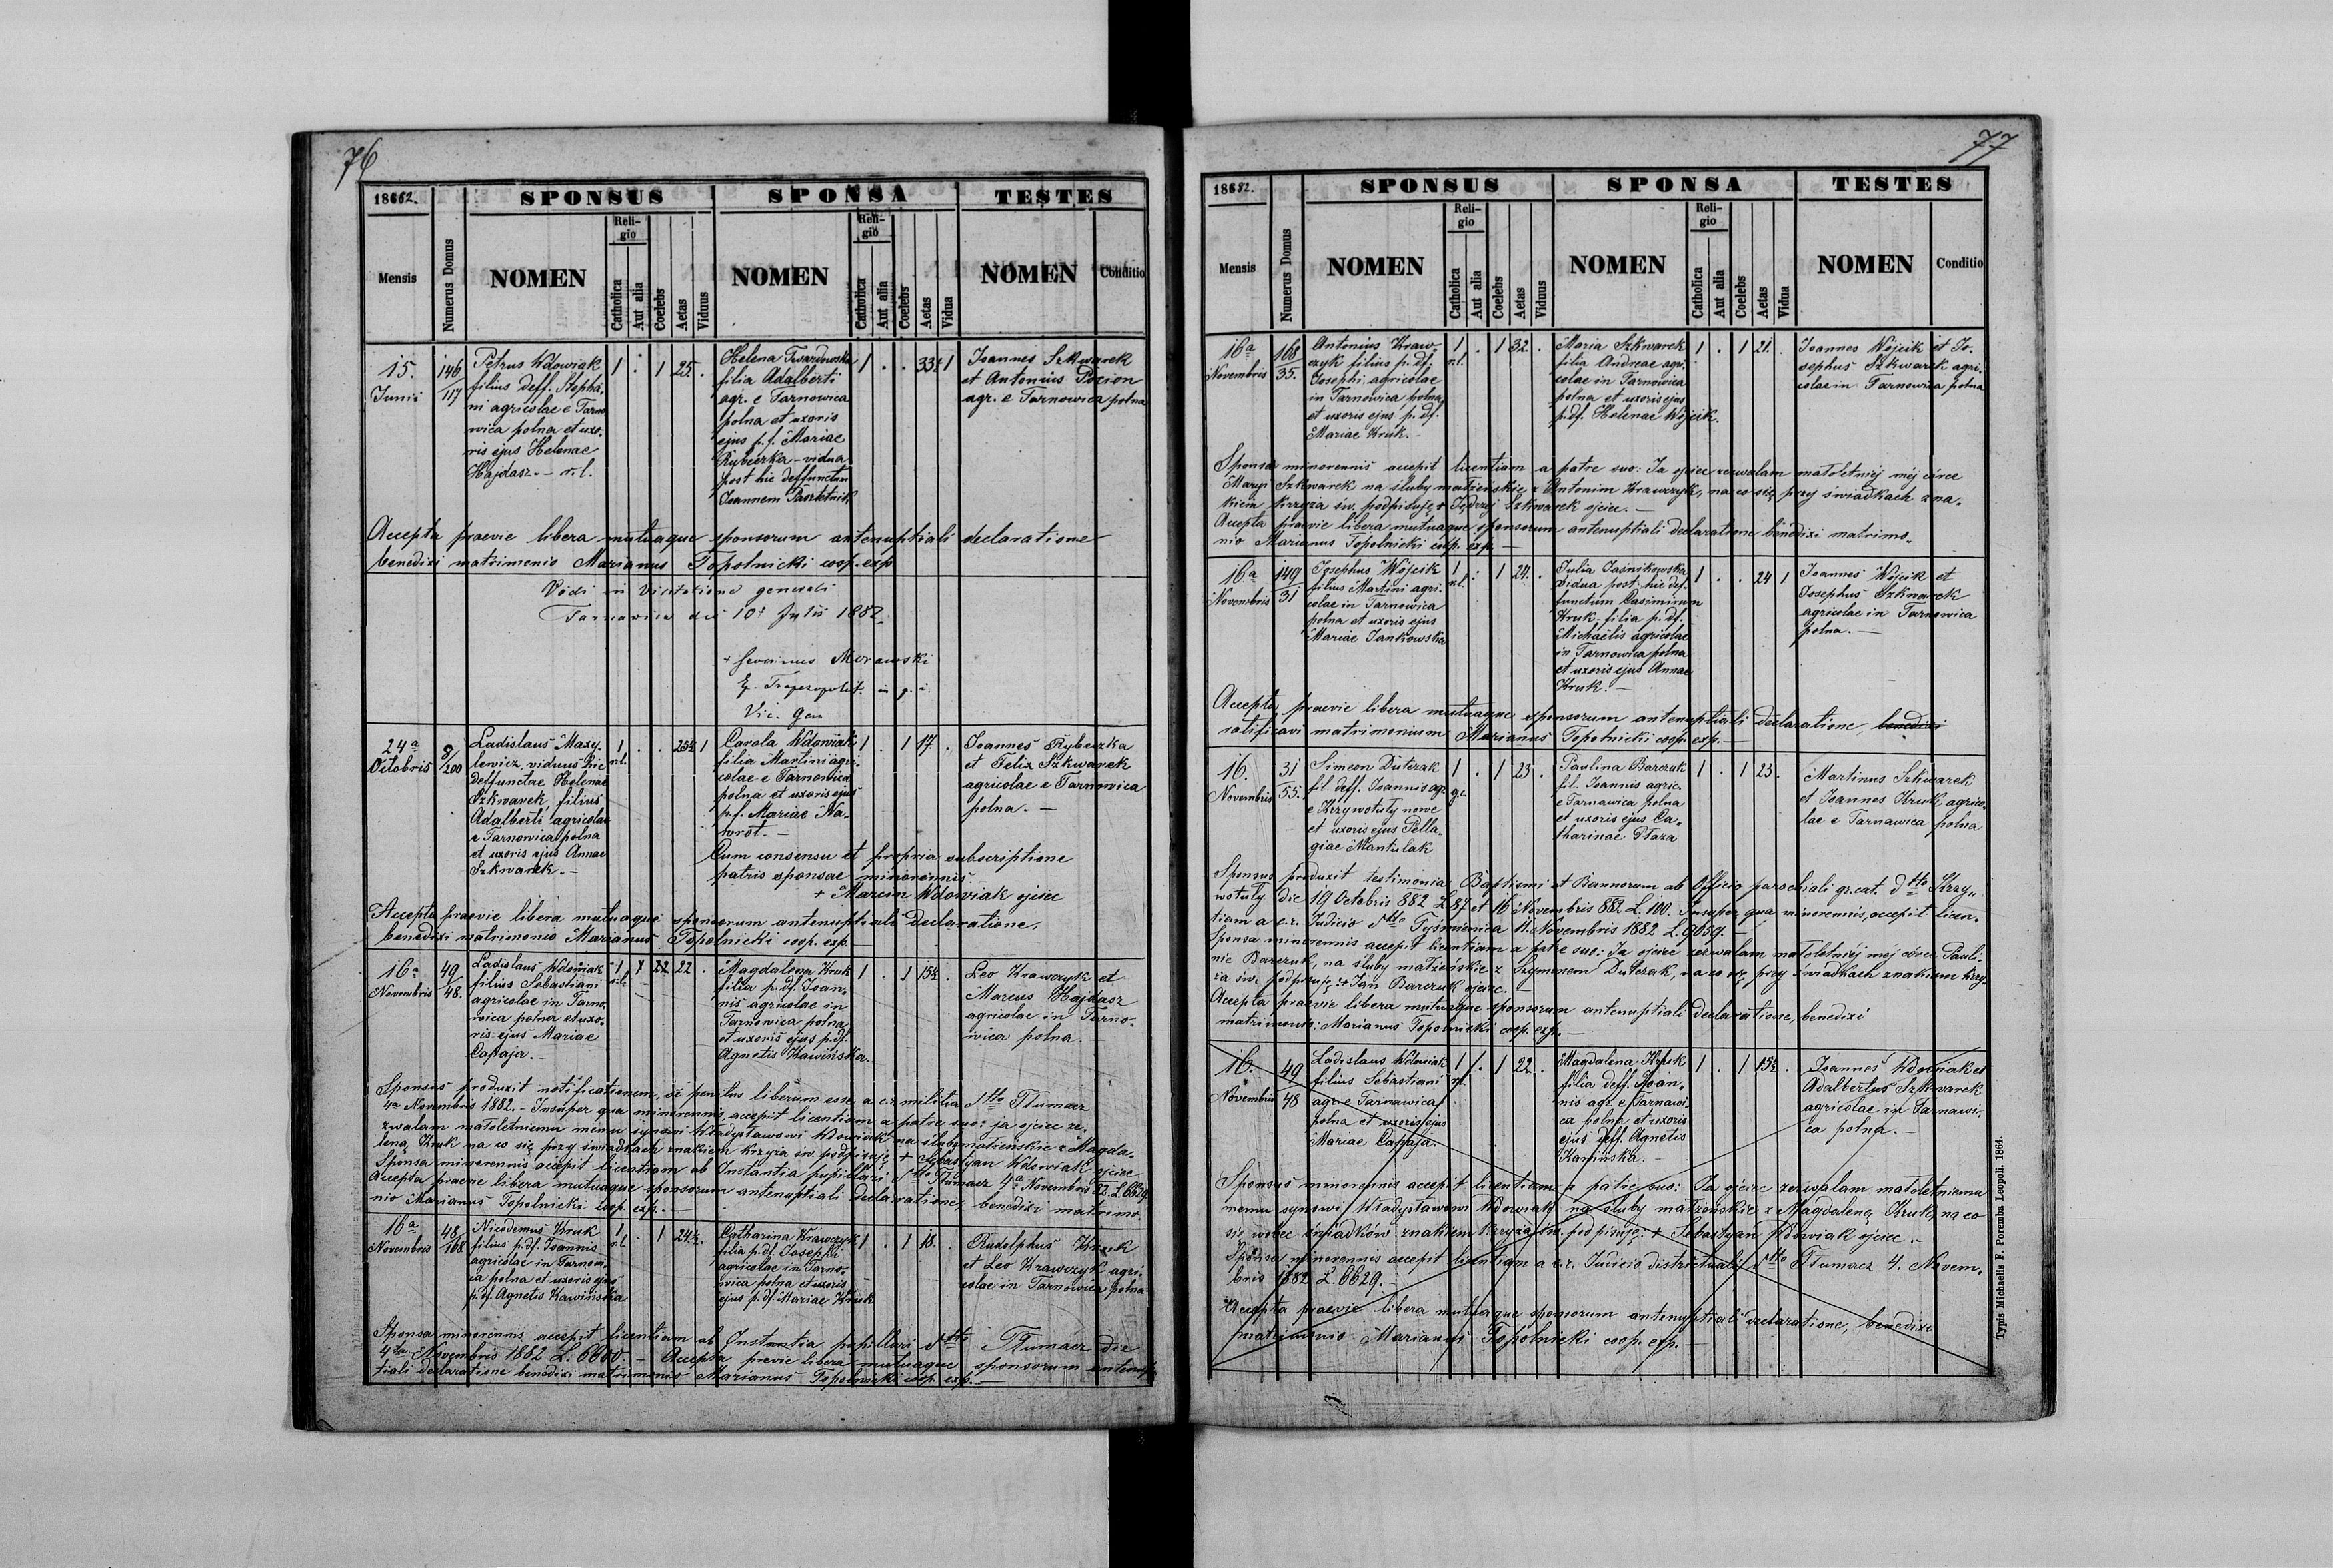 76
18682.
SPONSUS
SPONSA
TESTES
Mensis
Numerus Domus
NOMEN
Religio
Catholica
Aut alia
Coelebs
Aetas
Viduus
NOMEN
Religio
Catholica
Aut alia
Coelebs
Aetas
Vidua
NOMEN
Conditio
15. Junii
146/117
Petrus Wdowiak
filius deff. Stepha-
ni agricolae e Tarno
wica polna et uxo-
ris ejus Helenae
Hajdasz. – r. l.
1 . 1 25. .
Helena Twardowska
filia Adalberti
agr. e Tarnowica
polna et uxoris
ejus p. f. Mariae
Rybeczka – vidua
post hic deffunctum
Joannem Pasztetnik
1 . . 33 1
Joannes Szkwarek
et Antonius Pocion
agr. e Tarnowica polna
Accepta praevie libera mutuaque sponsorum antenuptiali declaratione
benedixi matrimonio Marianus Topolnicki coop. exp.
Vidi in Visitatione generali
Tarnowica die 10 Julii 1882.
+ Severinus Morawski
Ep. Trapezopolit. in p. i.
Vic. Gen
24a Octobris
8/200
Ladislaus Maxy-
lewicz, viduus hic
deffunctae Helenae
Szkwarek, filius
Adalberti agricolae
e Tarnowica polna
et uxoris ejus Annae
Szkwarek. –
1 r.l. . . 25½ 1
Carola Wdowiak
filia Martini agri-
colae e Tarnowica
polna et uxoris ejus
p. f. Mariae Na-
wrot. –
1 . 1 17. .
Joannes Rybeczka
et Felix Szkwarek
agricolae e Tarnowica
polna. –
Cum consensu et propria subscriptione
patris sponsae minorennis
+ Marcin Wdowiak ojciec
Accepta praevie libera mutuaque sponsorum antenuptiali declaratione,
benedixi matrimonio Marianus Topolnicki coop. exp. –
16a Novembris
49/48.
Ladislaus Wdowiak
filius Sebastiani
agricolae in Tarno-
wica polna et uxo-
ris ejus Mariae
Capaja. –
1 r.l. 22 22 .
Magdalena Kruk
filia p. df. Joan-
nis agricolae in
Tarnowica polna
et uxoris ejus p. df.
Agnetis Kawińska.
1 . 1 15½ .
Leo Krawczyk et
Marcus Hajdasz
agricolae in Tarno-
wica polna.
Sponsus produxit notificationem, se penitus liberum esse a c. r. militia dtto Tłumacz
4a Novembris 1882. – Insuper qua minorennis accepit licentiam a patre suo: ja ojciec ze-
zwalam małoletniemu memu synowi Władysławowi Wdowiak na śluby małżeńskie z Magda-
leną Kruk na co się przy świadkach znakiem krzyża św. podpisuję + Sebastyan Wdowiak ojciec
Sponsa minorennis accepit licentiam ab Instantia pupillari dtto Tłumacz 4a Novembris 82. L. 6629
Accepta praevie libera mutuaque sponsorum antenuptiali declaratione, benedixi matrimo-
nio Marianus Topolnicki coop. exp. –
16a Novembris
48/168
Nicodemus Kruk
filius p. df. Joannis
agricolae in Tarnowi-
ca polna et uxoris ejus
p. df. Agnetis Kawińska
1 r.l . 1 24½ .
Catharina Krawczyk
filia p. df. Josephi
agricolae in Tarno-
wica polna et uxoris
ejus p. df. Mariae Kruk
1 . 1 18. .
Rudolphus Kruk
et Leo Krawczyk agri-
colae in Tarnowica polna
Sponsa minorennis accepit licentiam ab Instantia pupillari dtto Tłumacz die
4ta Novembris 1882 L. 6600 – Accepta previe libera mutuaque sponsorum antenup-
tiali declaratione benedixi matrimonio Marianus Topolnicki coop. exp. –
77
18682.
SPONSUS
SPONSA
TESTES
Mensis
Numerus Domus
NOMEN
Religio
Catholica
Aut alia
Coelebs
Aetas
Viduus
NOMEN
Religio
Catholica
Aut alia
Coelebs
Aetas
Vidua
NOMEN
Conditio
16a Novembris
168/35.
Antonius Kraw-
czyk filius p. df.
Josephi agricolae
in Tarnowica polna
et uxoris ejus p. df.
Mariae Kruk. –
1 r.l. . 1 32. .
Maria Szkwarek
filia Andreae agri-
colae in Tarnowica
polna et uxoris ejus
p. df. Helenae Wójcik.
1 . 1 21. .
Joannes Wójcik et Jo-
sephus Szkwarek agri-
colae in Tarnowica polna
Sponsa minorennis accepit licentiam a patre suo: Ja ojciec zezwalam małoletniej mej córce
Maryi Szkwarek na śluby małżeńskie z Antonim Krawczyk, na co się przy świadkach zna-
kiem krzyża św. podpisuję + Jędrzej Szkwarek ojciec. –
Accepta praevie libera mutuaque sponsorum antenuptiali declaratione benedixi matrimo-
nio Marianus Topolnicki coop. exp. –
16a Novembris
149/31
Josephus Wójcik
filius Martini agri-
colae in Tarnowica
polna et uxoris ejus
Mariae Jankowska
1 r.l. . 1 24. .
Julia Jaśnikowska
vidua post hic def-
functum Casimirum
Kruk, filia p. df.
Michaelis agricolae
in Tarnowica polna
et uxoris ejus Annae
Kruk. –
1 . . 24 1
Joannes Wójcik et
Josephus Szkwarek
agricolae in Tarnowica
polna. –
Accepta praevie libera mutuaque sponsorum antenuptiali declaratione, benedixi
ratificavi matrimonium Marianus Topolnicki coop. exp. –
16. Novembris
31/55.
Simeon Dutczak
fil. deff. Joannis agr.
e Krzywotuły nowe
et uxoris ejus Pella-
giae Mantulak
1 g.c. . 1 23 .
Paulina Barczuk
fil. Joannis agric.
e Tarnawica polna
et uxoris ejus Ca-
tharinae Płaza
1 . 1 23. .
Martinus Szkwarek
et Joannes Kruk agrico-
lae e Tarnawica polna
Sponsus produxit testimonia Baptismi et Bannorum ab Officio parochiali gr. cat. dtto Krzy-
wotuły die 19 Octobris 882 L. 87 et 16 Novembris 882 L. 100. Insuper qua minorennis, accepit licen-
tiam a c. r. Judicio dtto Tyśmienica Novembris 1882 L. 9659. –
Sponsa minorennis accepit licentiam a patre suo: Ja ojciec zezwalam małoletniej mej córce Pauli-
nie Barczuk, na śluby małżeńskie z Szymonem Dutczak, na co się przy świadkach znakiem krzy-
ża św. podpisuję: + Jan Barczuk ojciec. –
Accepta praevie libera mutuaque sponsorum antenuptiali declaratione, benedixi
matrimonio: Marianus Topolnicki coop. exp. –
16. Novembris
49/48
Ladislaus Wdowiak
filius Sebastiani
agr. e Tarnawica
polna et uxoris ejus
Mariae Capaja.
1 r.l. . 1 22. .
Magdalena Kruk
filia deff. Joan-
nis agr. e Tarnawi-
ca polna et uxoris
ejus deff. Agnetis
Kawinska. –
1 . 1 15½ .
Joannes Wdowiak et
Adalbertus Szkwarek
agricolae in Tarnawi-
ca polna. –
Sponsus minorennis accepit licentiam a patre suo: Ja ojciec zezwalam małoletniemu
memu synowi Władysławowi Wdowiak na śluby małżeńskie z Magdaleną Kruk, na co
się wobec świadków znakiem krzyża św. podpisuję: + Sebastyan Wdowiak ojciec. –
Sponsa minorennis accepit licentiam a c. r. Judicio districtuali dtto Tłumacz 4. Novem-
bris 1882 L. 6629. –
Accepta praevie libera mutuaque sponsorum antenuptiali declaratione, benedixi
matrimonio Marianus Topolnicki coop. exp. –
Typis Michaelis F. Poremba Leopoli. 1864.